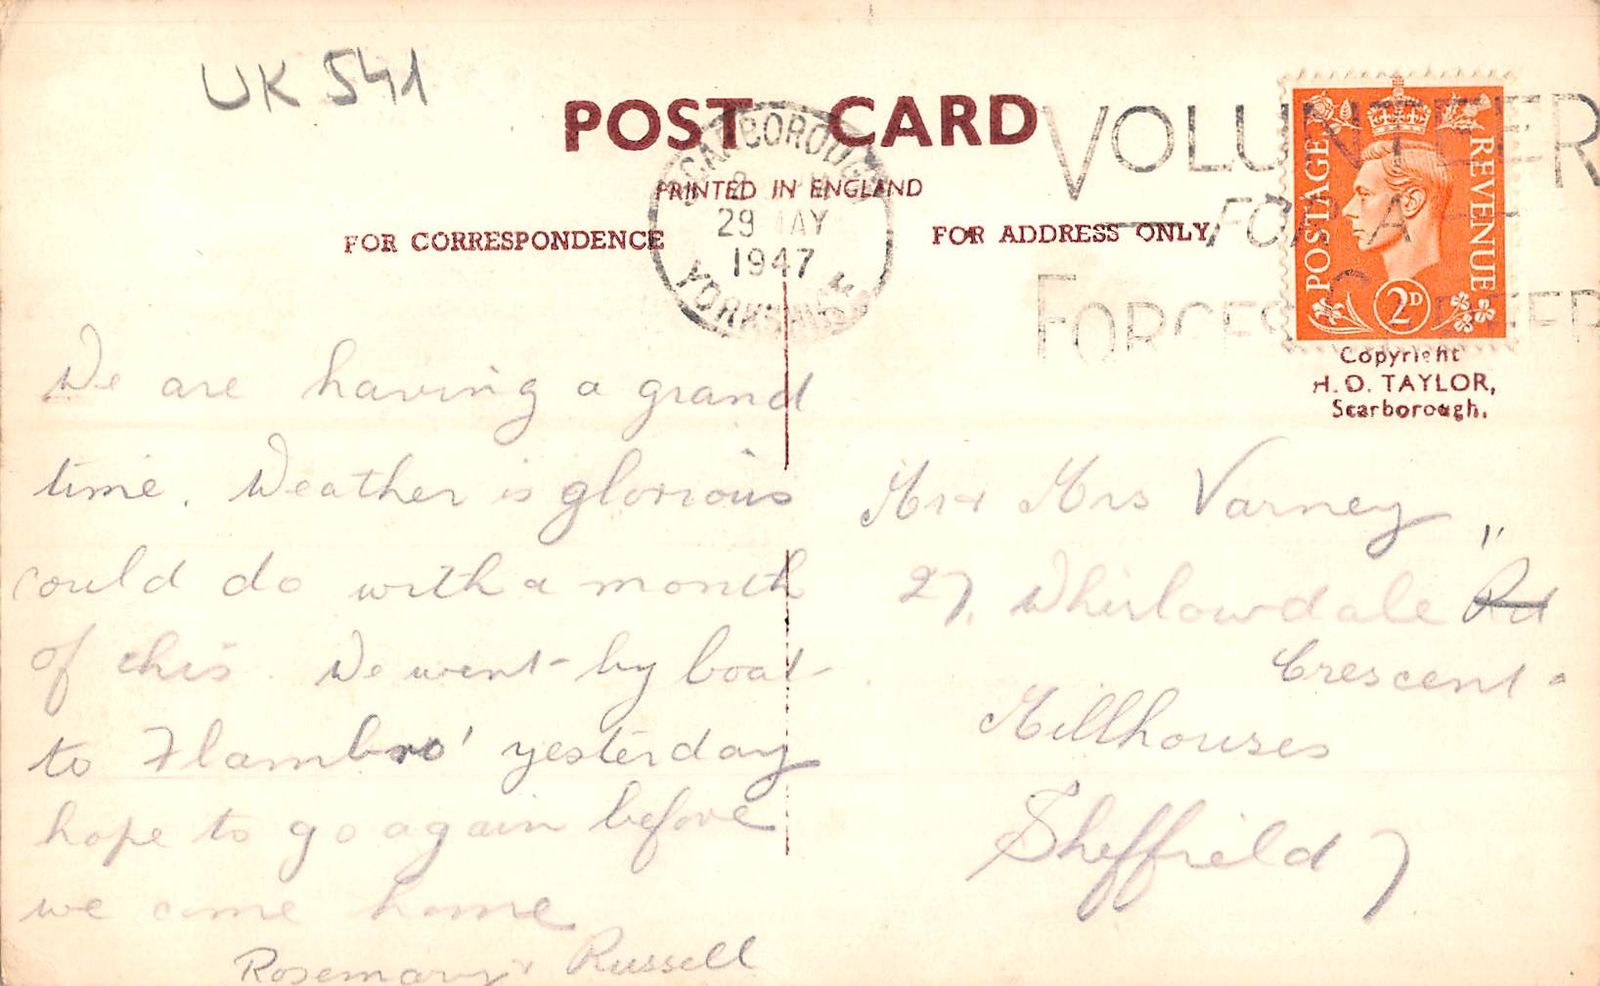 UK 541
POST CARD
PRINTED IN ENGLAND
FOR CORRESPONDENCE
FOR ADDRESS ONLY
SCARBOROUGH
29 MAY
1947
YORKSHIRE
VOLUNTEER
FOR A
FORCES CAREER
POSTAGE
REVENUE
2D
Copyright
H. O. TAYLOR,
Scarborough.
We are having a grand
time. Weather is glorious
could do with a month
of this. We went by boat
to Flambro' yesterday
hope to go again before
we come home
Rosemary & Russell
Mr & Mrs Varney
27, Whirlowdale Rd "
Crescent.
Millhouses
Sheffield 7